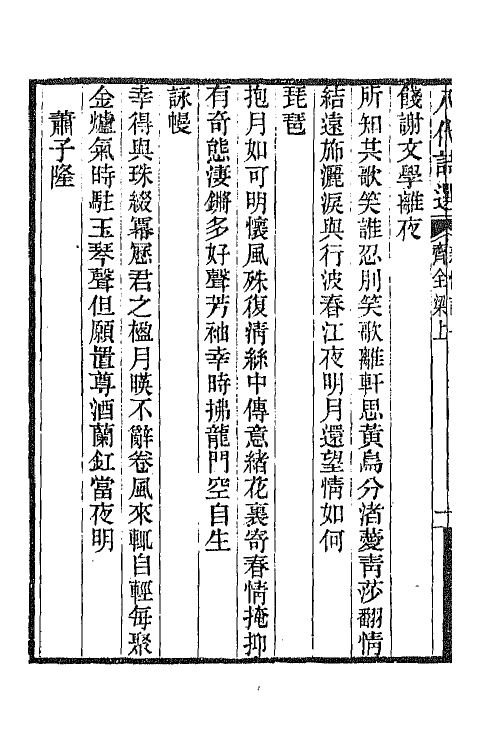 八代詩選 齊全梁上
餞謝文學離夜
所知共歌笑誰忍別笑歌離軒思黃鳥分渚薆靑莎翻情
結遠斾灑淚與行波春江夜明月還望情如何
琵琶
抱月如可明懷風殊復淸絲中傳意緒花裏寄春情掩抑
有奇態淒鏘多好聲芳袖幸時拂龍門空自生
詠幔
幸得與珠綴羃歷君之楹月暎不辭卷風來輒自輕每聚
金爐氣時駐玉琴聲但願置尊酒蘭釭當夜明
蕭子隆